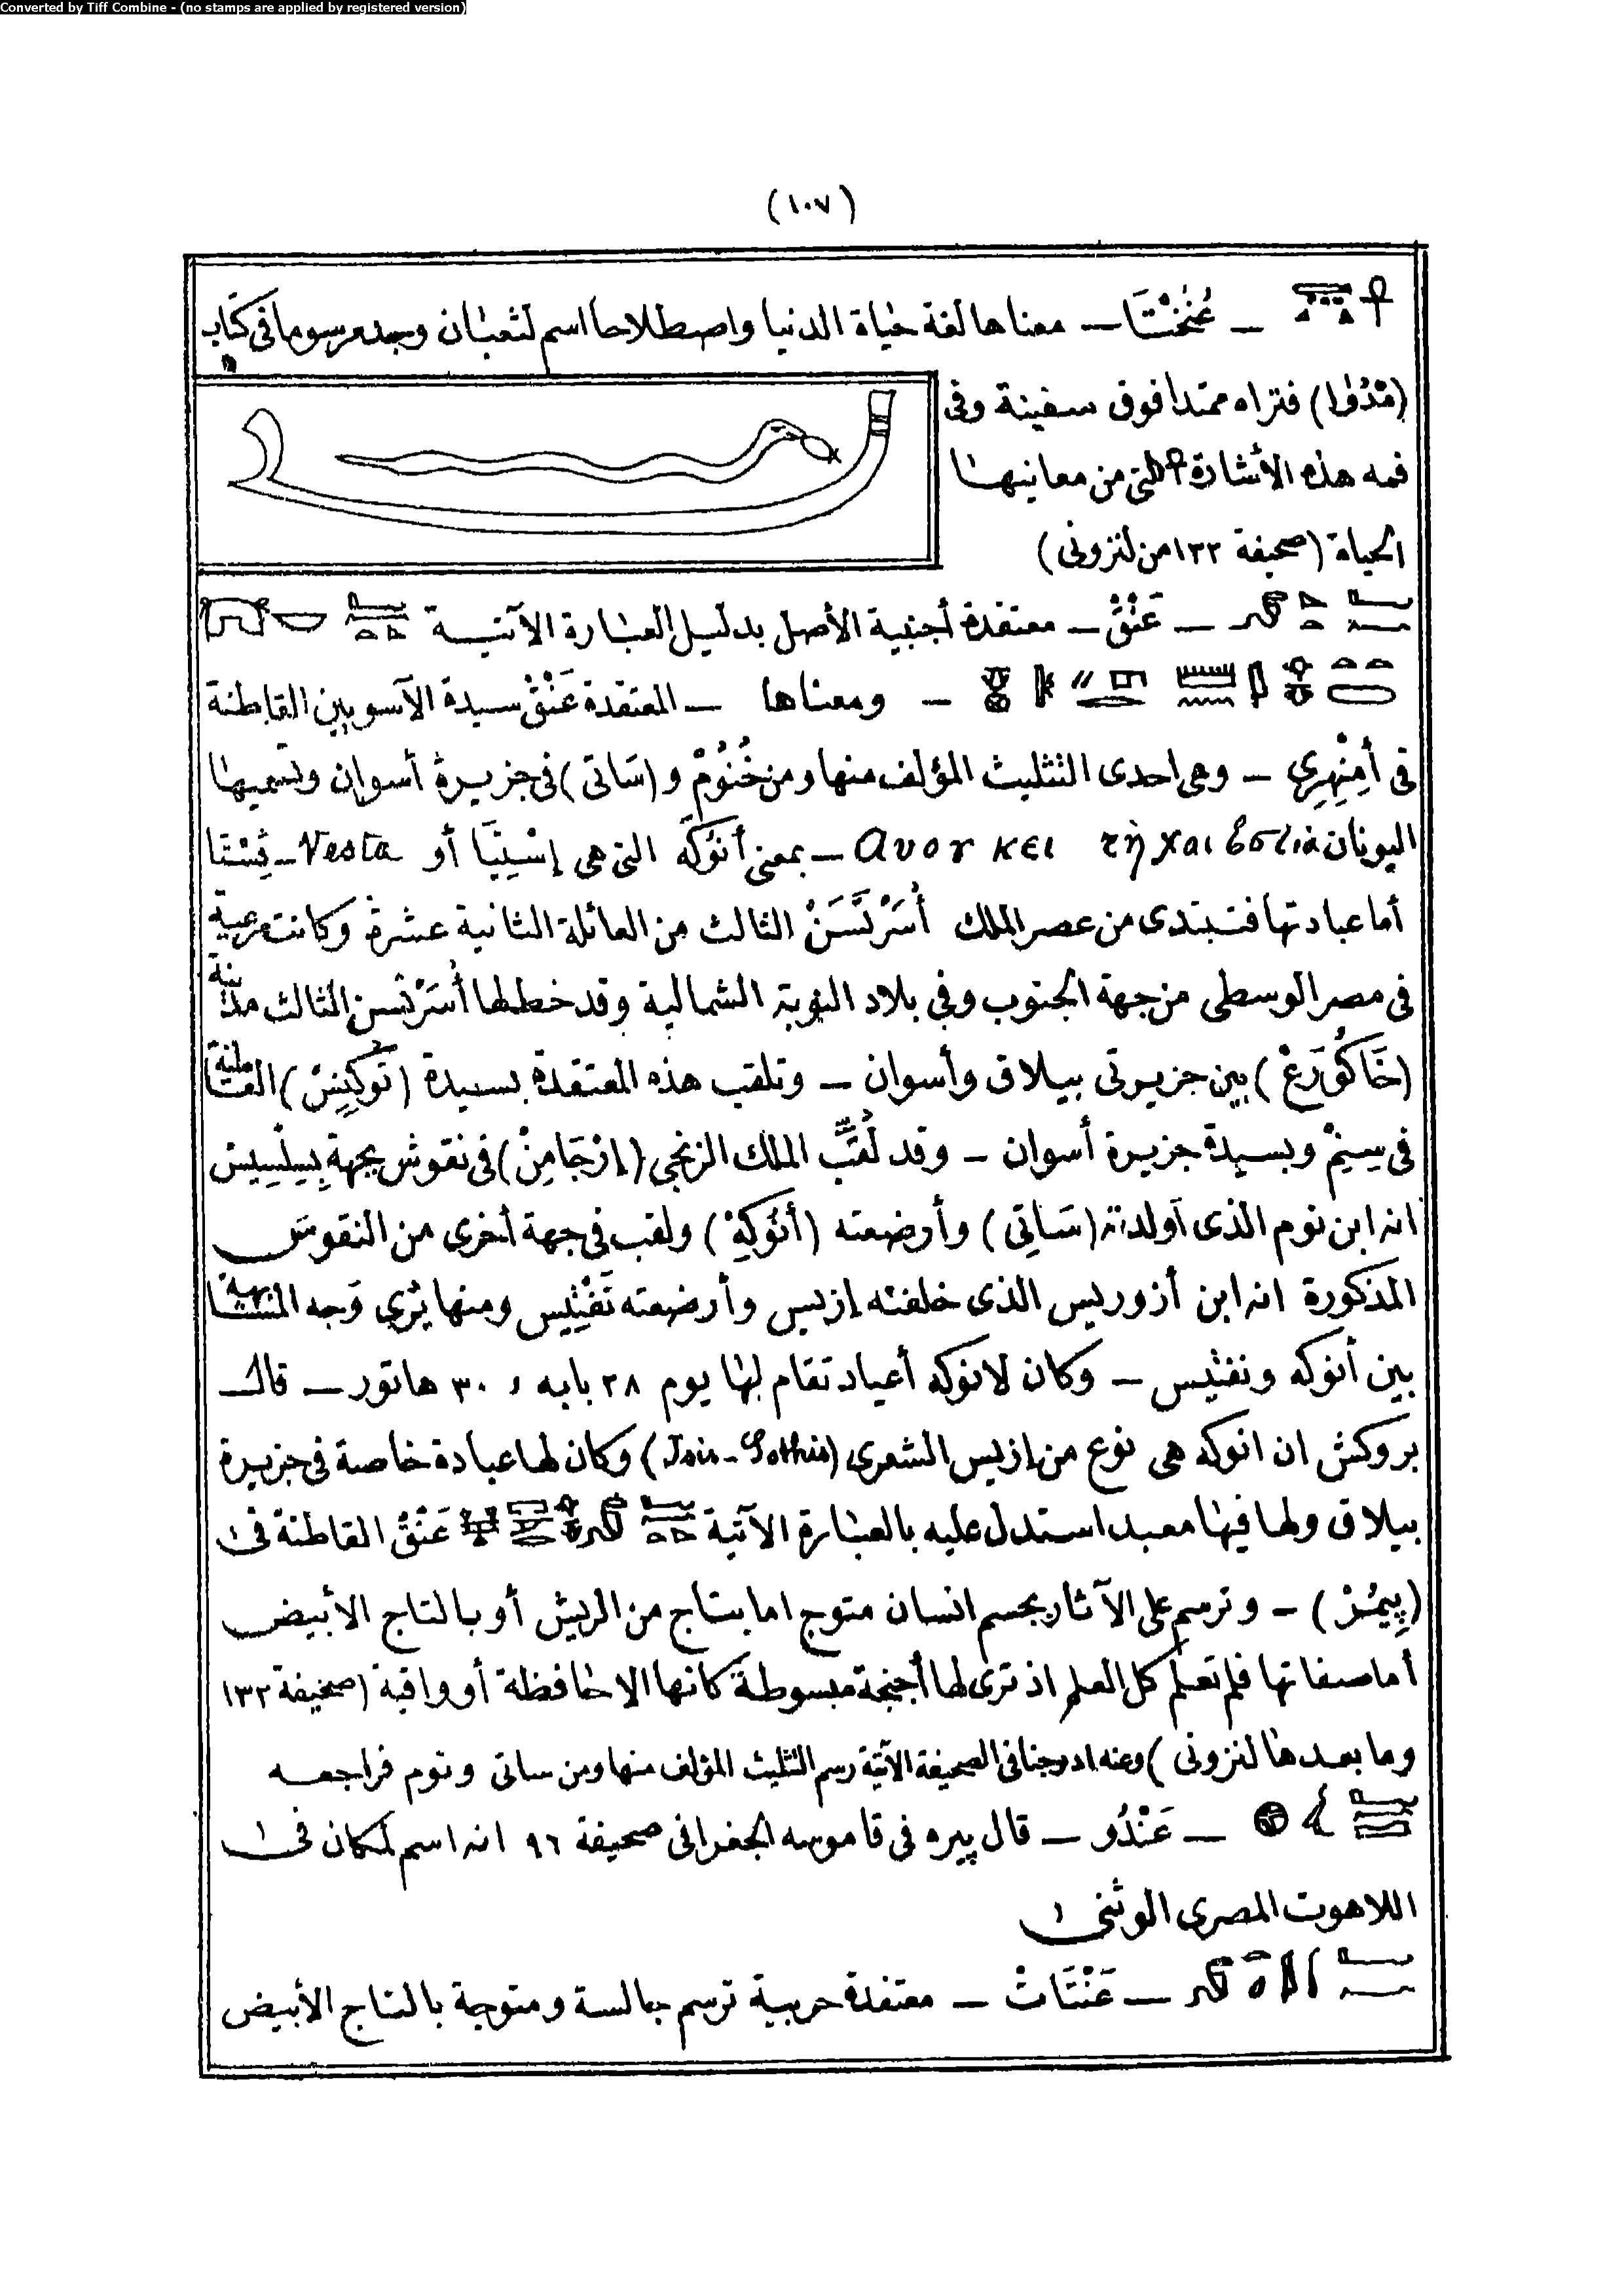 Converted by Tiff Combine - (no stamps are applied by registered version)
(١٠٧)
— عُنْخْتَا — معناها لغة حياة الدنيا واصطلاحا اسم لثعبان وجد مرسوما فى كتاب
فتراه ممتدا فوق سفينة وفى
فمه هذه الأشارة التى من معانيها
الحياة (صحيفة ١٣٢ من لنزونى)
— عَنْقْ — معتقدة أجنبية الأصل بدليل العبارة الآتية
— ومعناها — المعتقدة عَنْقْ سيدة الآسويين القاطنة
فى أَمِنْهِرِي — وهى احدى التثليث المؤلف منها ومن خْنُومْ و (سَاتى) فى جزيرة أسوان وتسميها
اليونان Ανουκει τῇ και Εστίᾳ — بمعنى أَنُوكَه التى هى إسْتِيَا أو Vesta — فِسْتَا
أما عبادتها فتبتدى من عصر الملك أُسَرْتَسَنْ الثالث من العائلة الثانية عشرة وكانت مرعية
فى مصر الوسطى من جهة الجنوب وفى بلاد النوبة الشمالية وقد خطط لها أُسَرْتَسن الثالث مدينة
(خَاكُورَعْ) بين جزيرتى بيلاق وأسوان — وتلقب هذه المعتقدة بسيدة (تَوكِنِسْ) القاطنة
فى سِنِمْ وبسيدة جزيرة أسوان — وقد لُقِّبَ الملك الزنجي (إرْجَامِنْ) فى نقوش بجهة بِسِلْسِيسْ
انه ابن نوم الذى أولدته (سَاتِى) وأرضعته (أَنُوكَه) ولقب فى جهة أخرى من النقوش
المذكورة انه ابن أزوريس الذى خلفته إزيس وأرضعته نَفْتِيس ومنها يُرى وَجه المشابهة
بين أنوكه ونفتيس — وكان لانوكه أعياد تقام لها يوم ٢٨ بابه و ٣٠ هاتور — قال
بروكش ان انوكه هى نوع من إزيس الشعرى (Isis-Sothis) وكان لها عبادة خاصة فى جزيرة
بيلاق ولها فيها معبد استدل عليه بالعبارة الآتية عَنْقْ القاطنة فى
(پِيمُرْ) — وترسم على الآثار بجسم انسان متوج اما بتاج من الريش أو بالتاج الأبيض
أما صفاتها فلم تعلم كل العلم اذ ترى لها أجنحة مبسوطة كانها الاحافظة أو واقية (صحيفة ١٣٢
وما بعدها لنزونى) وعنه ادرجنا فى الصحيفة الآتية رسم التثليث المؤلف منها ومن ساتى ونوم فراجعه
— عَنْدُو — قال پيره فى قاموسه الجغرافى صحيفة ٩٦ انه اسم لمكان فى
اللاهوت المصرى الوثنى
— عَنْتَاتْ — معتقدة حربية ترسم جالسة ومتوجة بالتاج الأبيض